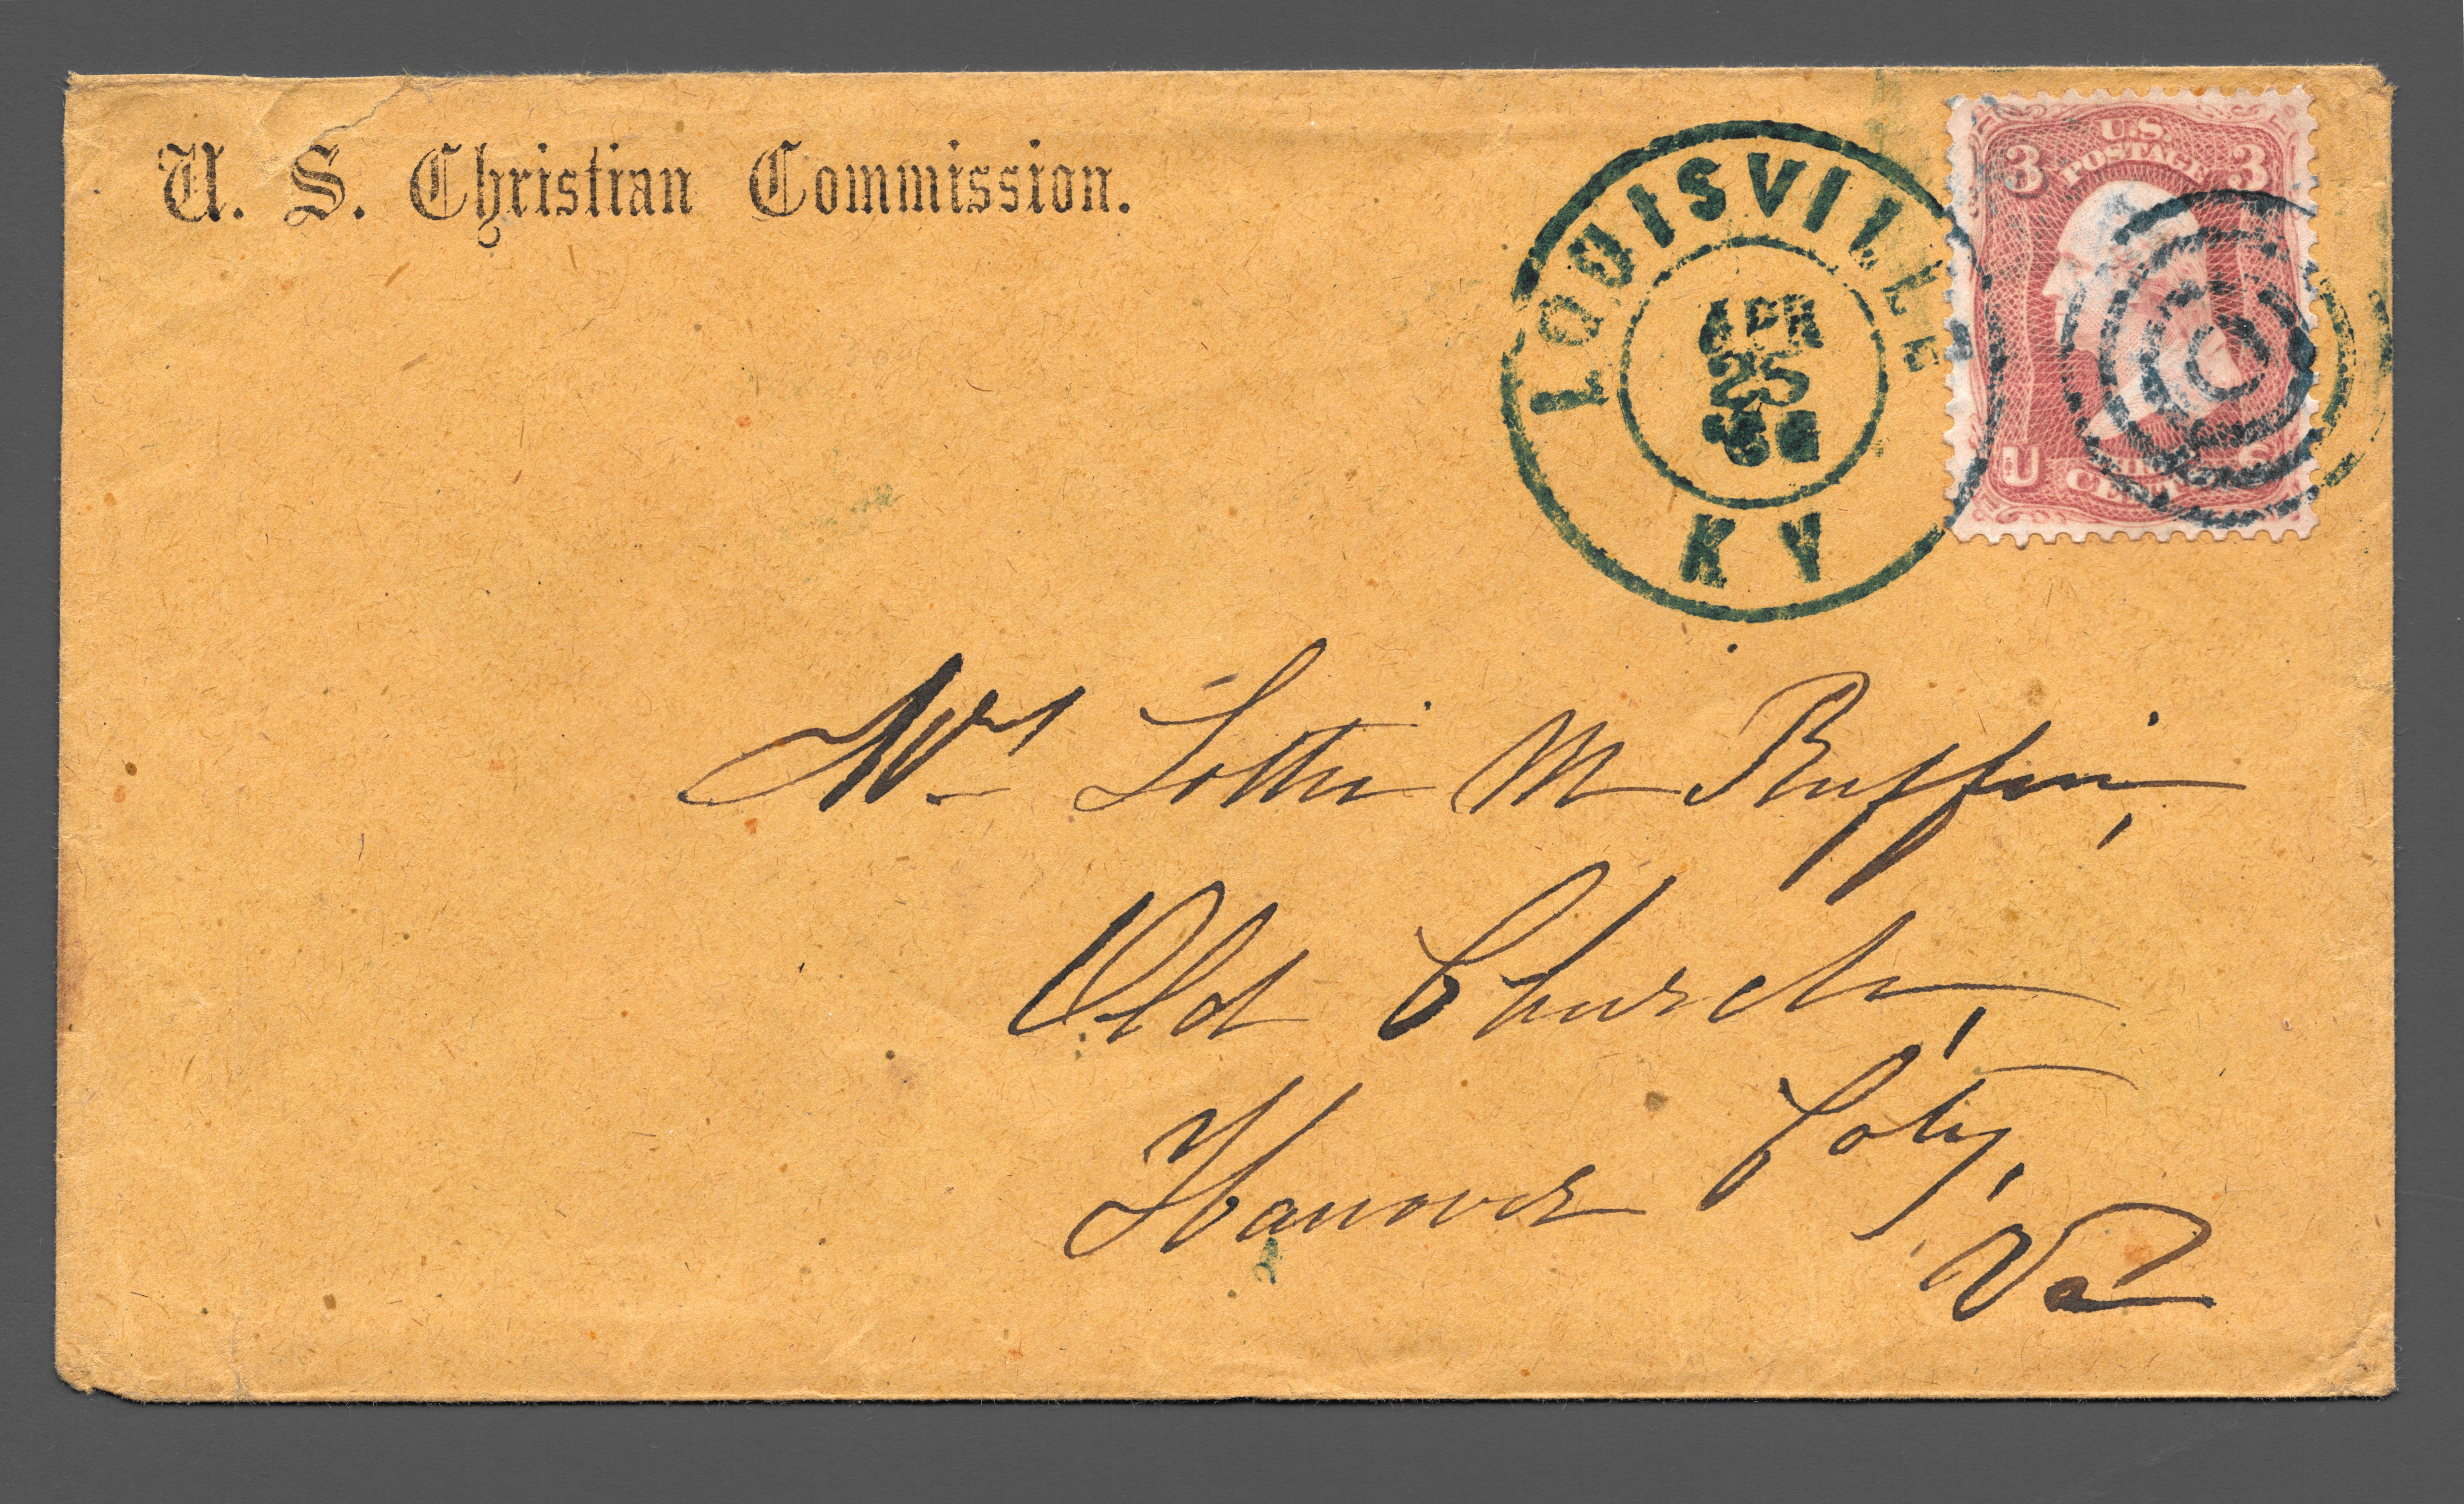 U. S. Christian Commission.
LOUISVILLE
APR
25
KY
U.S.
POSTAGE
3 3
U S
CENTS
Mrs Lottie M Ruffin,
Old Church,
Hanover Coty,
Va